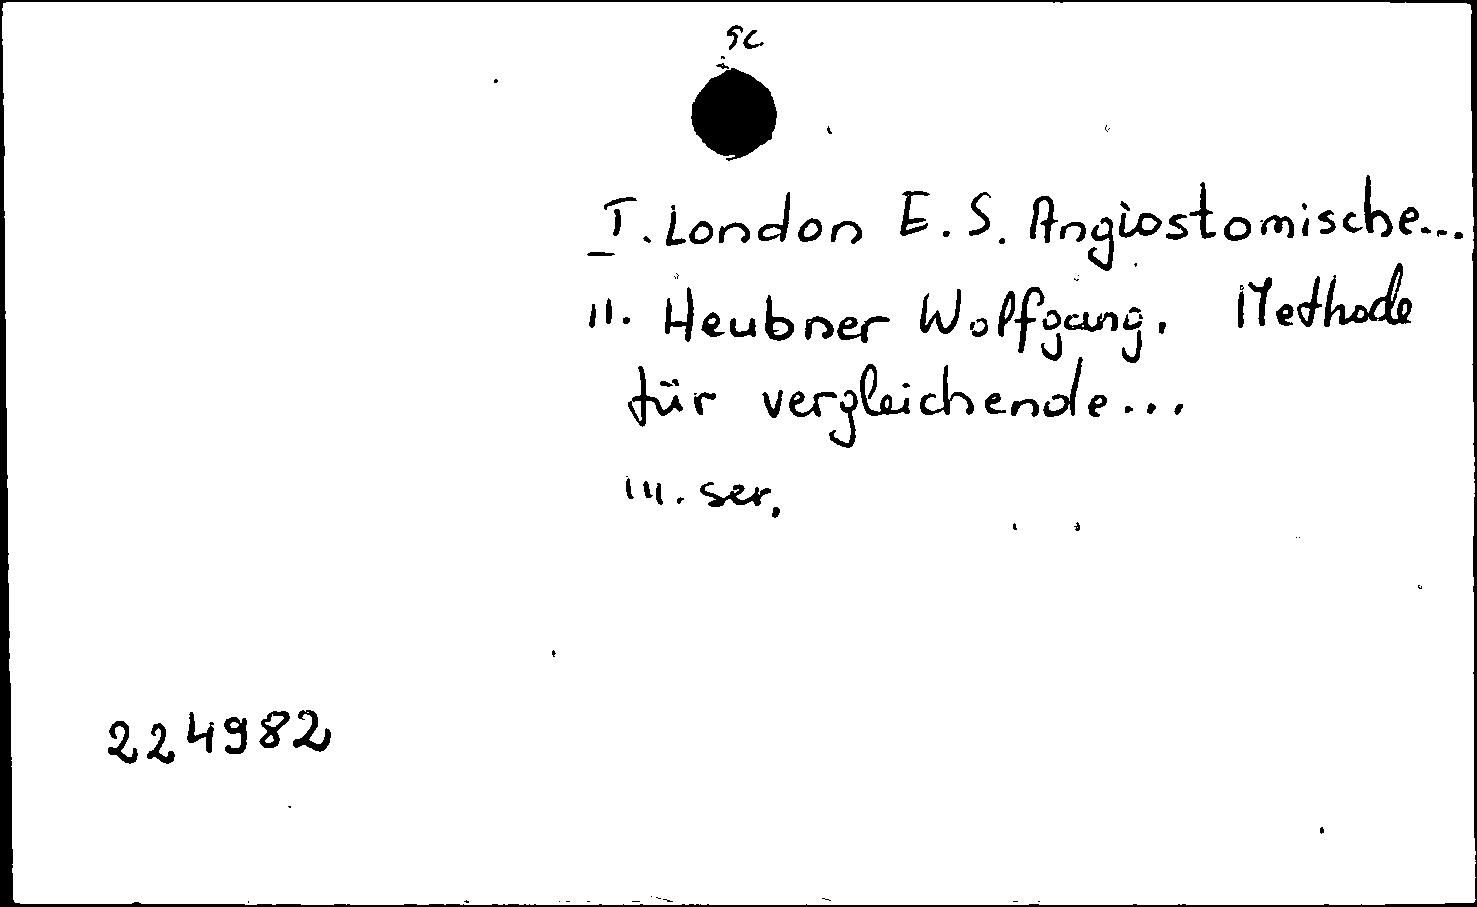 sc
I. London E. S. Angiostomische...
II. Heubner Wolfgang. Methode
für vergleichende...
III. ser.
224982